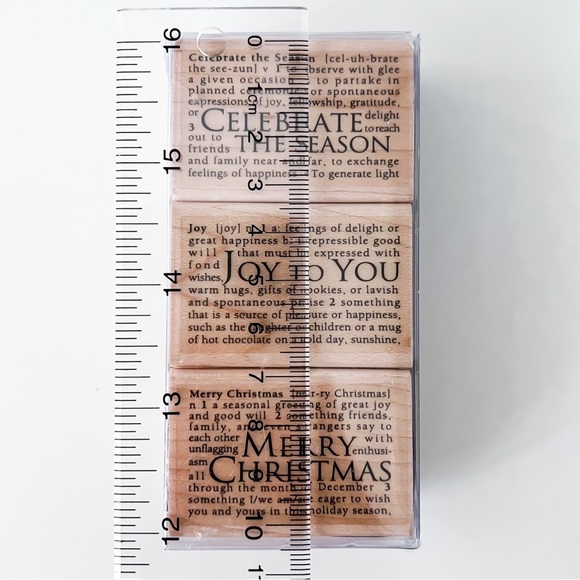 Celebrate the Season [cel-uh-brate
the see-zun] v 1 to observe with glee
a given occasion to partake in
planned ceremonies or spontaneous
expressions of joy, fellowship, gratitude,
or CELEBRATE delight
3 to reach
out to THE SEASON
friends
and family near and far, to exchange
feelings of happiness 4 To generate light
Joy [joy] n 1 a: feelings of delight or
great happiness b: irrepressible good
will that must be expressed with
fond JOY TO YOU
wishes,
warm hugs, gifts of cookies, or lavish
and spontaneous praise 2 something
that is a source of pleasure or happiness,
such as the laughter of children or a mug
of hot chocolate on a cold day, sunshine,
Merry Christmas [mer-ry Christmas]
n 1 a seasonal greeting of great joy
and good will 2 something friends,
family, and even strangers say to
each other MERRY with
unflagging enthusi-
asm CHRISTMAS
all
through the month of December 3
something I/we am/are eager to wish
you and yours in this holiday season,
16
15
14
13
12
0
1cm
2
3
4
5
6
7
8
9
10